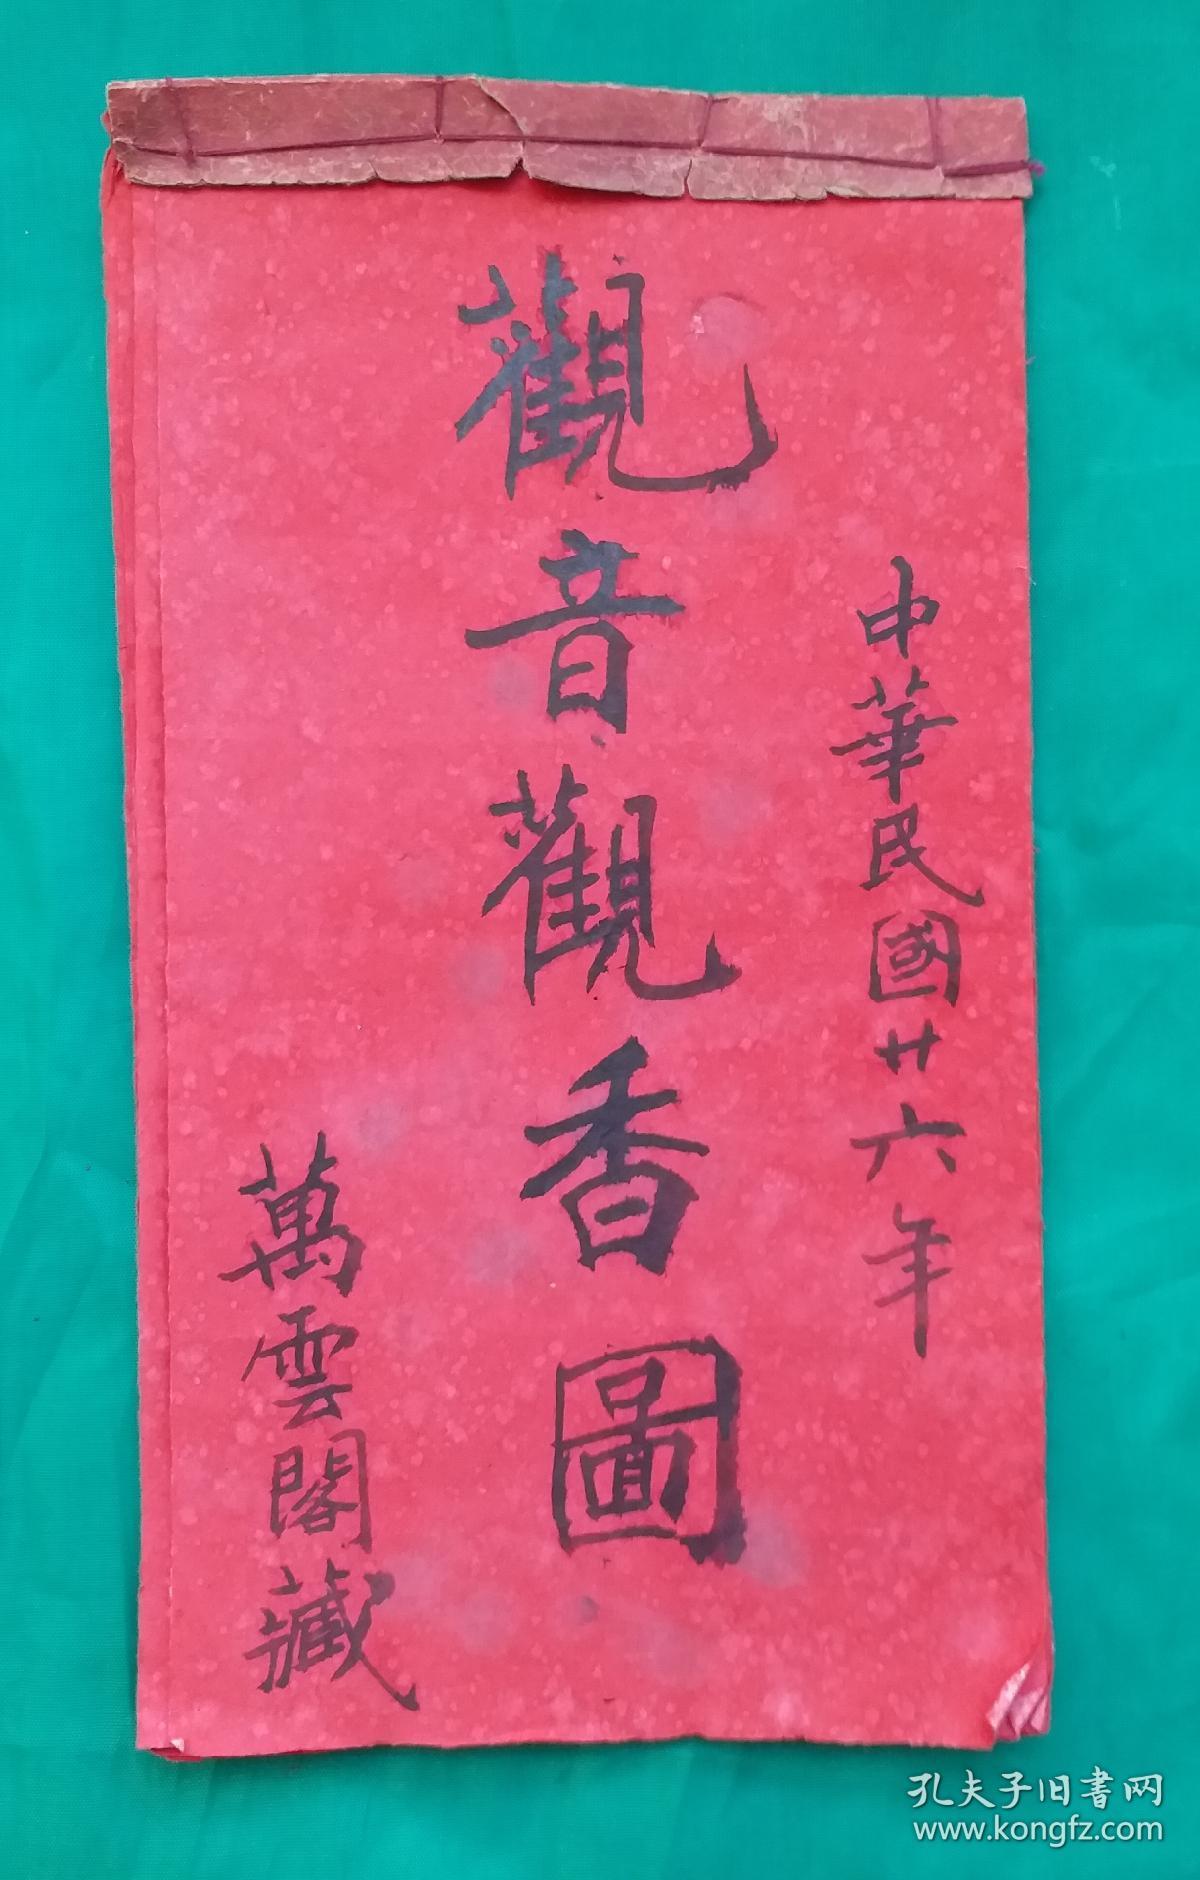 中華民國廿六年
觀音觀香圖
萬雲閣藏
孔夫子旧书网
www.kongfz.com